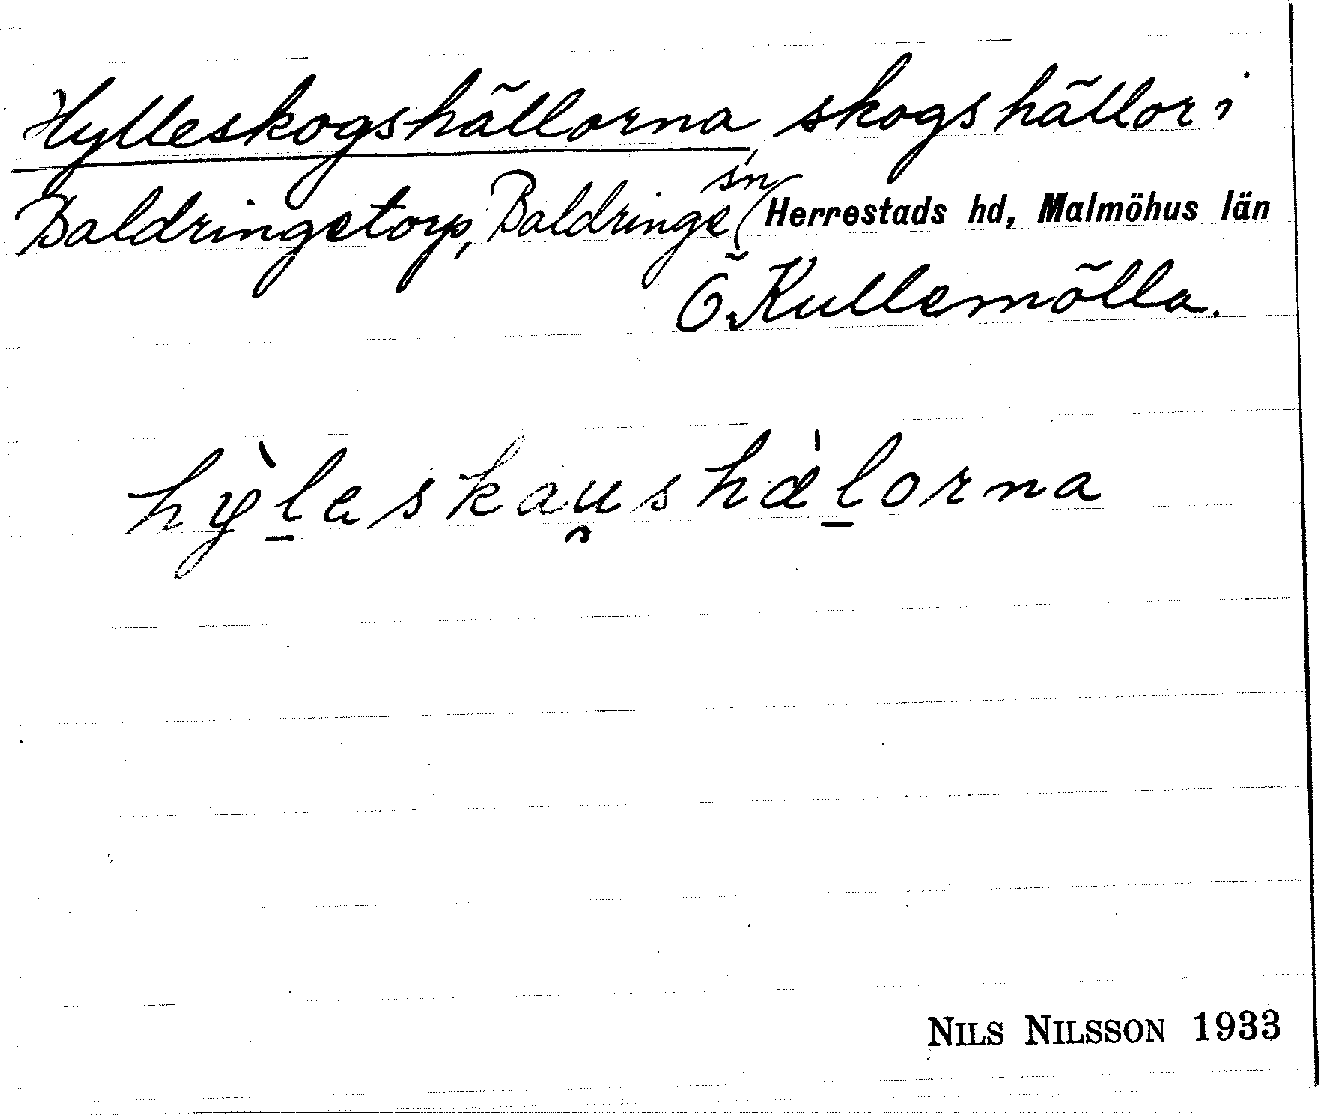 Hylleskogshällorna skogshällor i
Baldringetorp, Baldringe sn Herrestads hd, Malmöhus län
Ö. Kullemölla.
hỳl̲askau̯shæ̀l̲orna
NILS NILSSON 1933